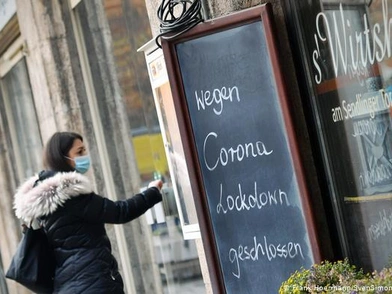 wegen
Corona
Lockdown
geschlossen
s'Wirtsh
am Sendlinger
© Frank Hoermann/SvenSimon